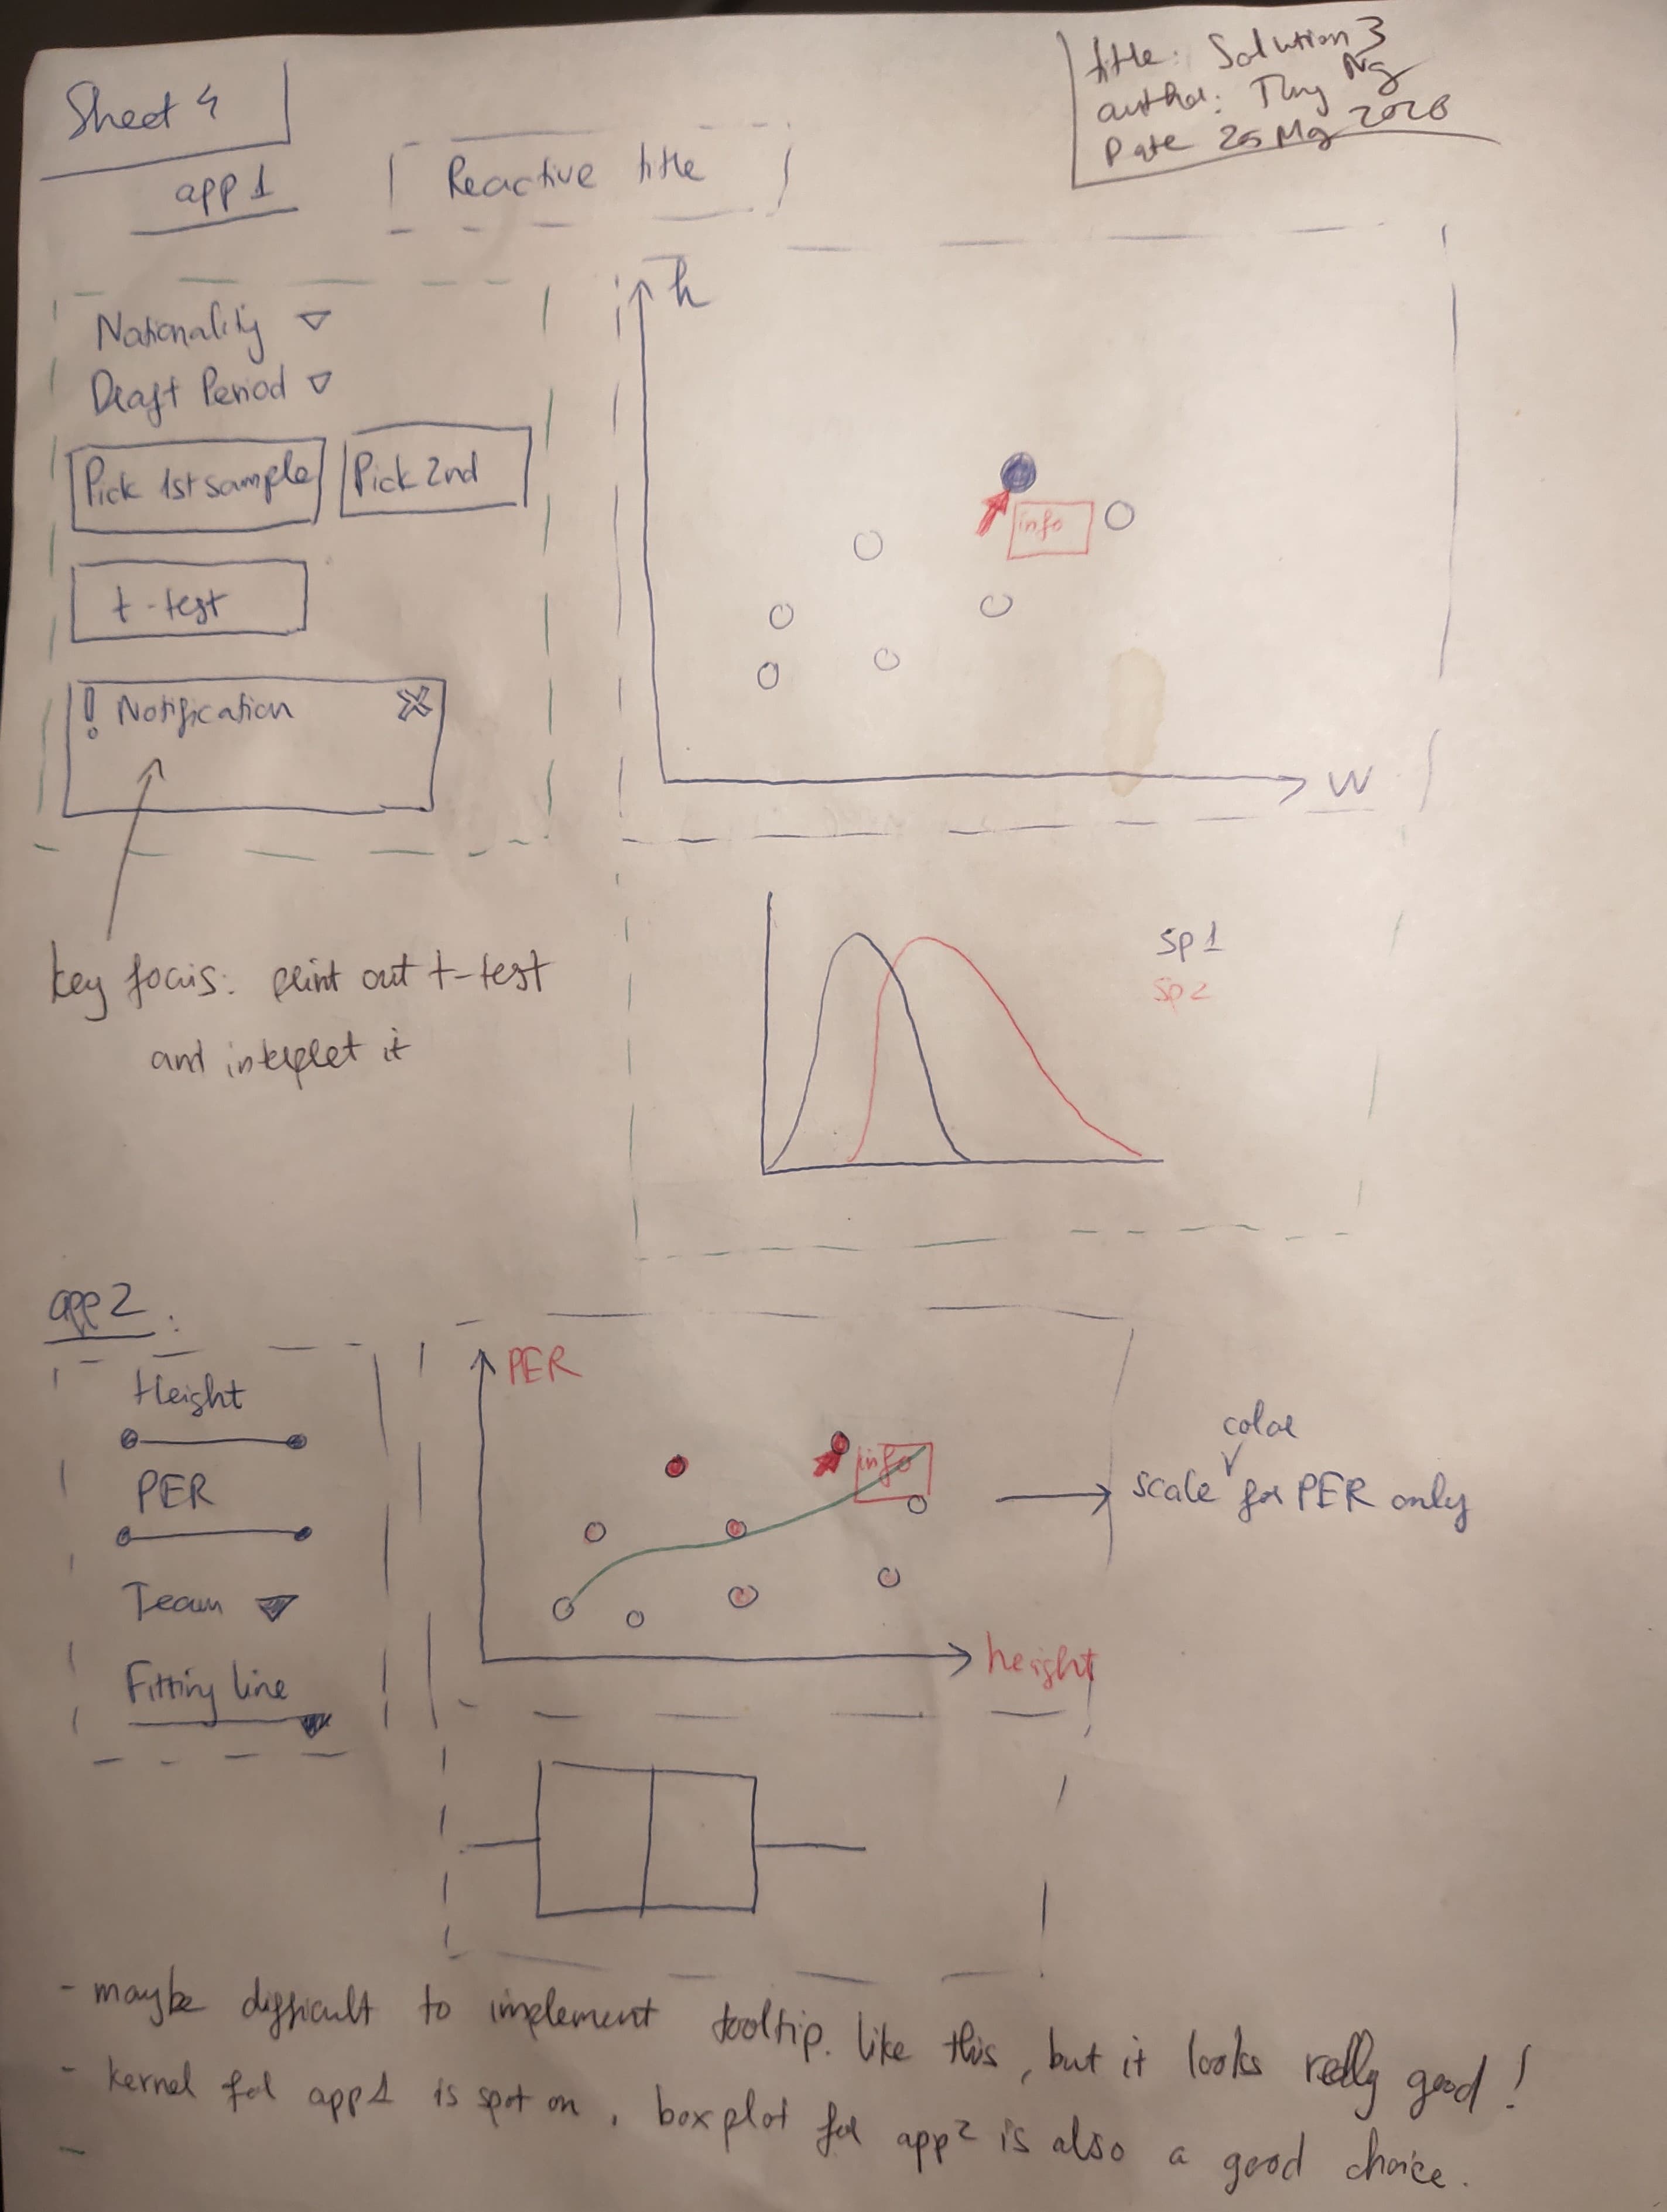 Sheet 4
title: Solution 3
author: Thuy Ng
Date 25 2020
app 1
Reactive title
Nationality
Draft Period
Pick 1st sample
Pick 2nd
t-test
! Notification X
key focus: print out t-test
and interpret it
h
info
w
sp1
sp2
app 2 :
Height
PER
Team
Fitting line
PER
info
height
color
scale for PER only
- maybe difficult to implement tooltip. like this, but it looks really good!
- kernel for app1 is spot on, boxplot for app2 is also a good choice.
-